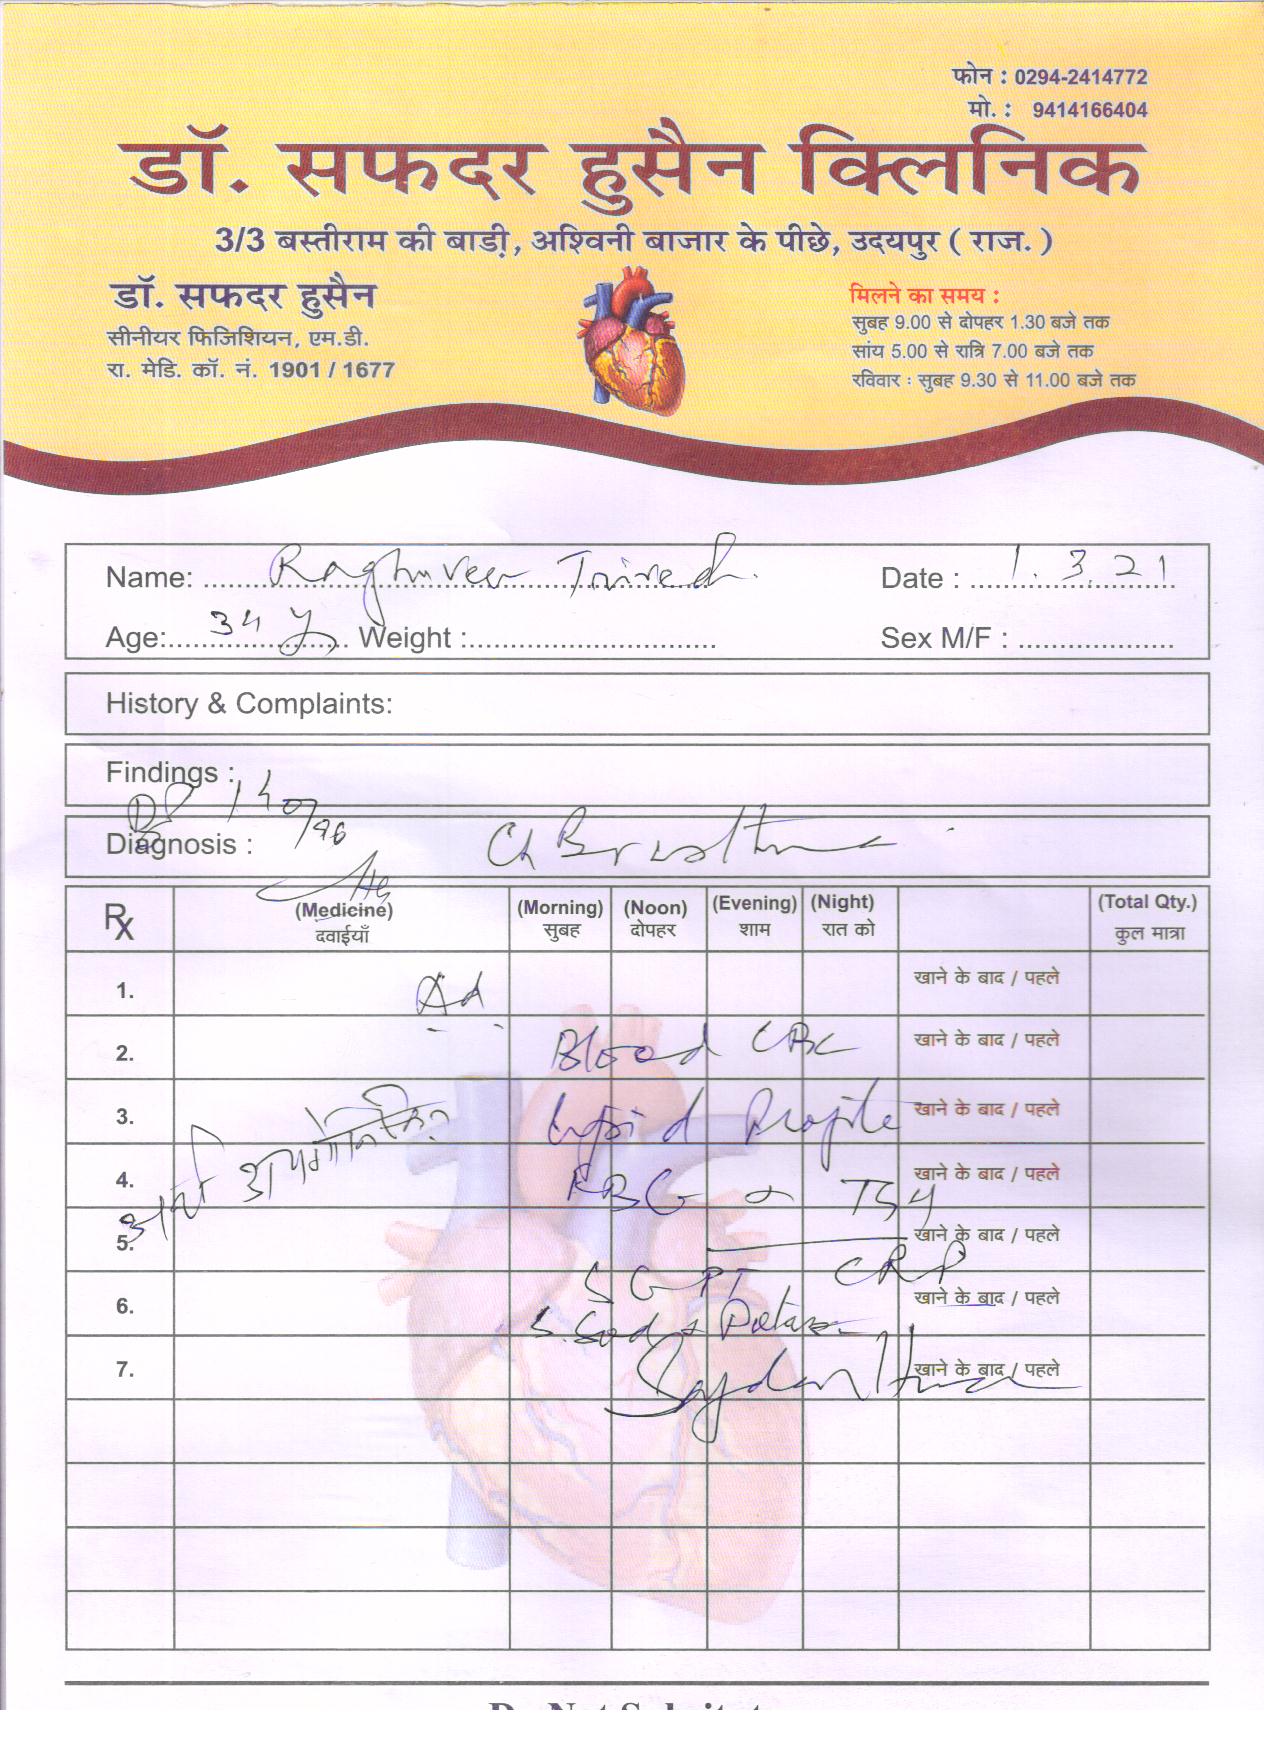 फोन : 0294-2414772
मो. : 9414166404
डॉ. सफदर हुसैन क्लिनिक
3/3 बस्तीराम की बाडी़, अश्विनी बाजार के पीछे, उदयपुर ( राज. )
डॉ. सफदर हुसैन
सीनीयर फिजिशियन, एम.डी.
रा. मेडि. कॉ. नं. 1901 / 1677
मिलने का समय :
सुबह 9.00 से दोपहर 1.30 बजे तक
सांय 5.00 से रात्रि 7.00 बजे तक
रविवार : सुबह 9.30 से 11.00 बजे तक
Name: Raghuveer Trivedi Date : 1.3.21
Age: 34 y Weight : Sex M/F :
History & Complaints:
Findings :
BP 140/96
Diagnosis :
Hg
Rx (Medicine) (Morning) (Noon) (Evening) (Night) (Total Qty.)
दवाईयाँ सुबह दोपहर शाम रात को कुल मात्रा
1. Ad खाने के बाद / पहले
2. Blood CBC खाने के बाद / पहले
3. Lipid Profile खाने के बाद / पहले
4. RBG TSH खाने के बाद / पहले
5. खाने के बाद / पहले
SGPT CRP
6. खाने के बाद / पहले
S. Sod + Potas
7. खाने के बाद / पहले